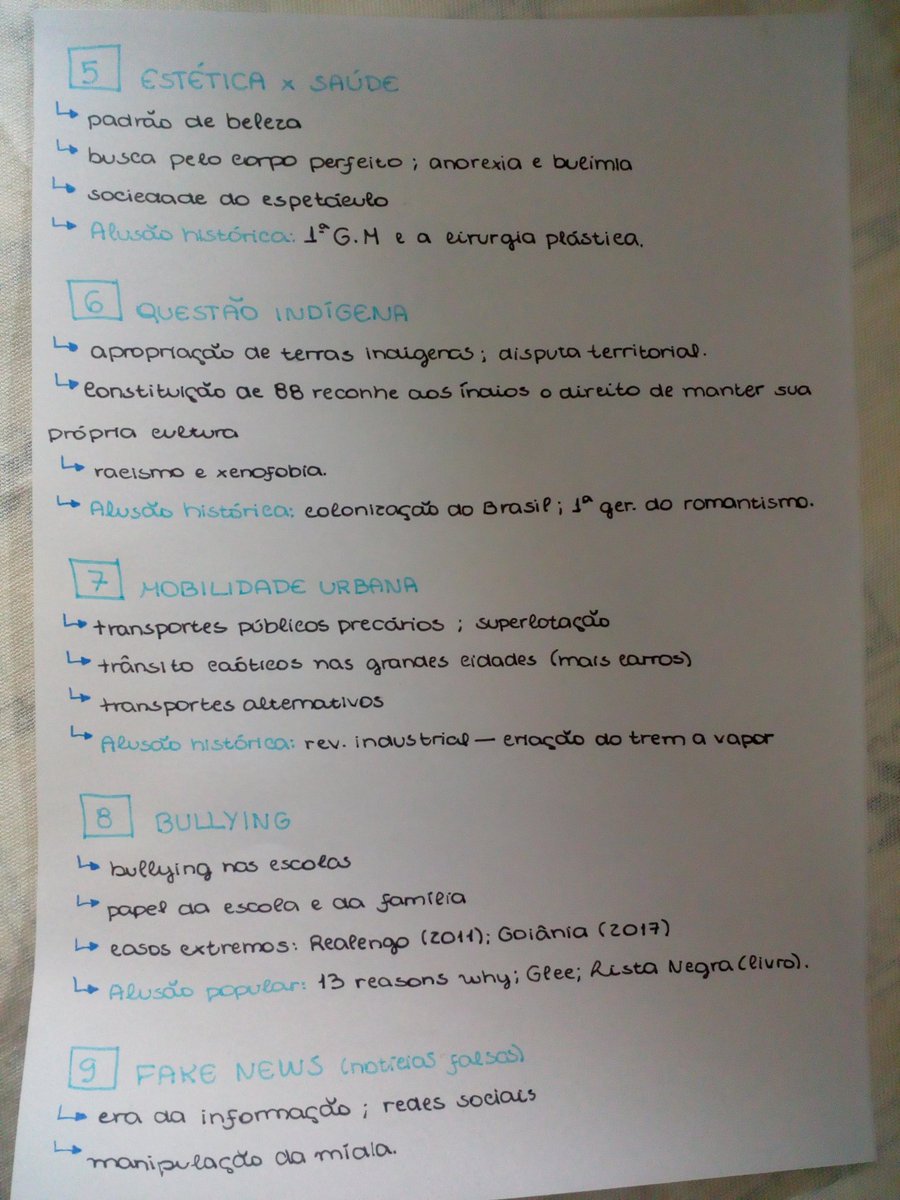 5 ESTÉTICA x SAÚDE
↳ padrão de beleza
↳ busca pelo corpo perfeito ; anorexia e bulimia
↳ sociedade do espetáculo
↳ Alusão histórica: 1ª G.M e a cirurgia plástica.
6 QUESTÃO INDÍGENA
↳ apropriação de terras indígenas ; disputa territorial.
↳ Constituição de 88 reconhe aos índios o direito de manter sua
própria cultura
↳ racismo e xenofobia.
↳ Alusão histórica: colonização do Brasil ; 1ª ger. do romantismo.
7 MOBILIDADE URBANA
↳ transportes públicos precários ; superlotação
↳ trânsito caóticos nas grandes cidades (mais carros)
↳ transportes alternativos
↳ Alusão histórica: rev. industrial — criação do trem a vapor
8 BULLYING
↳ bullying nas escolas
↳ papel da escola e da família
↳ casos extremos: Realengo (2011); Goiânia (2017)
↳ Alusão popular: 13 reasons why; Glee; Lista Negra (livro).
9 FAKE NEWS (notícias falsas)
↳ era da informação ; redes sociais
↳ manipulação da mídia.